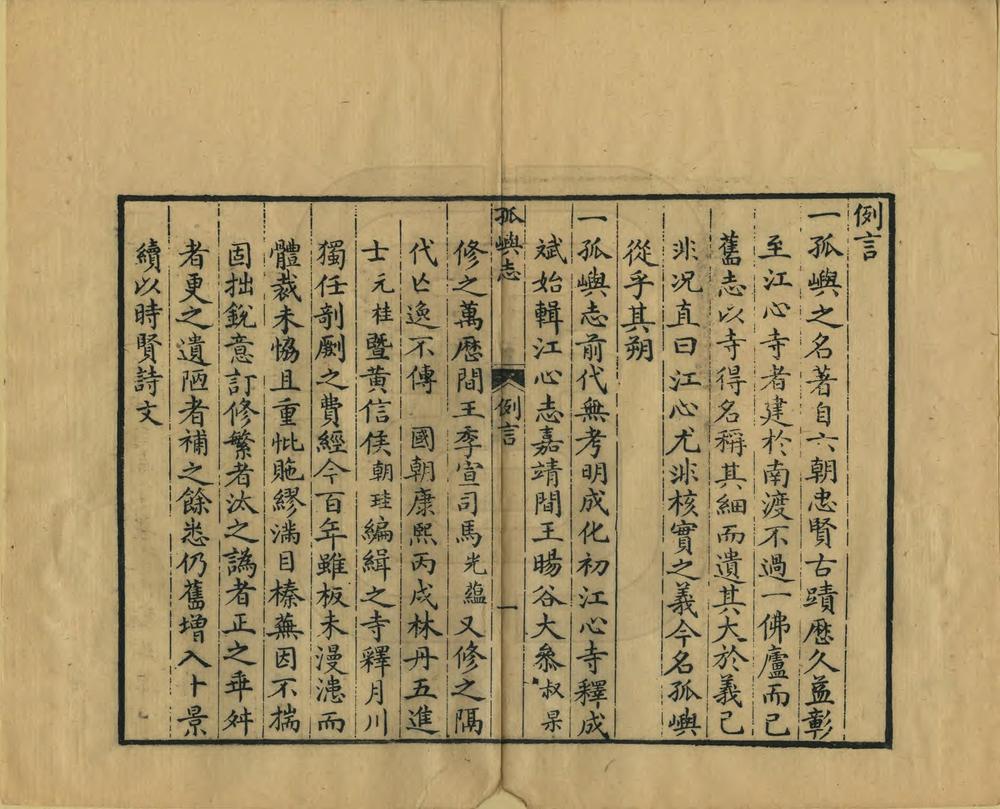 例言
一孤嶼之名著自六朝忠賢古蹟歷久益彰
至江心寺者建於南渡不過一佛廬而已
舊志以寺得名稱其細而遺其大於義已
非況直曰江心尤非核實之義今名孤嶼
從乎其朔
一孤嶼志前代無考明成化初江心寺釋成
斌始輯江心志嘉靖間王暘谷大叅叔杲
孤嶼志 例言 一
修之萬歷間王季宣司馬光蘊又修之隔
代亡逸不傳 國朝康熙丙戌林丹五進
士元桂暨黃信侯朝珪編緝之寺釋月川
獨任剞劂之費經今百年雖板未漫漶而
體裁未恊且重恱貤繆滿目榛蕪因不揣
固拙銳意訂修繁者汰之譌者正之乖舛
者更之遺陋者補之餘悉仍舊增入十景
續以時賢詩文